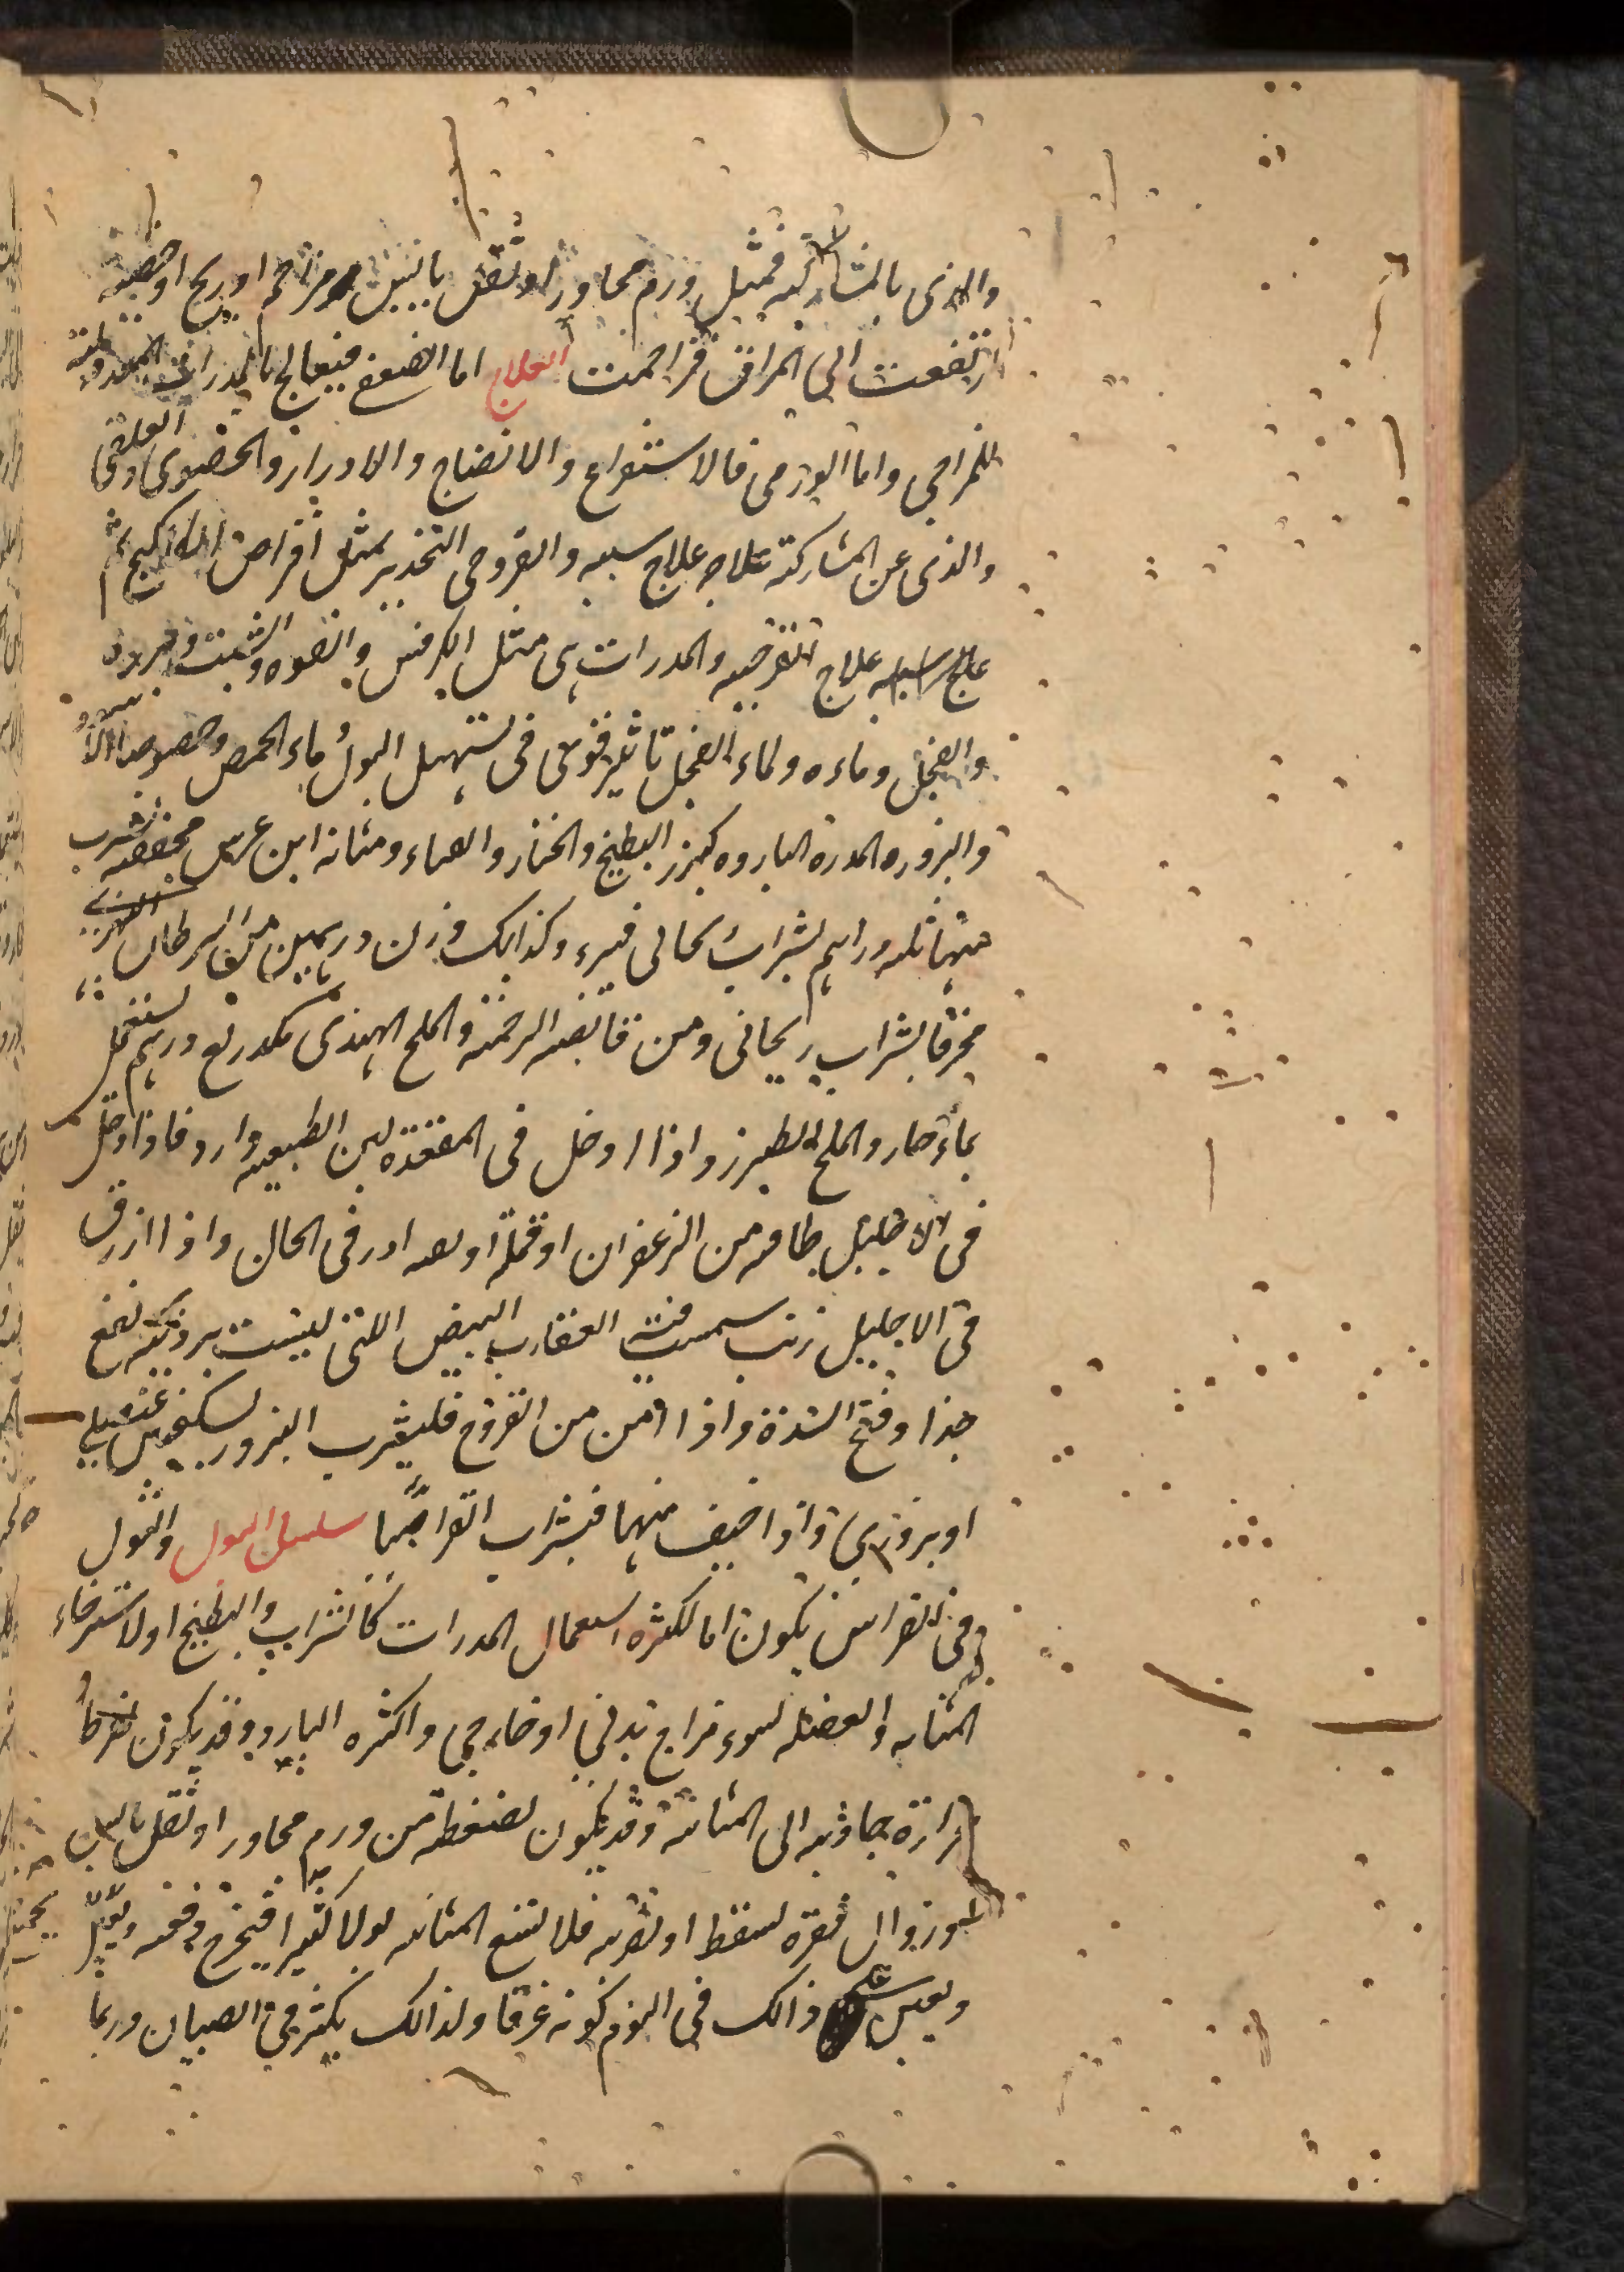 والذی بالمشارکه فمثل ورم مجاور او ثقل یابس مزاحم او ریح او خصیه
ارتفعت الی المراق فزاحمت العلاج اما الضعف فیعالج بالمدرات المعدله
للمزاجی واما الورمی فالاستفراغ والانضاج والادرار والحصوی والعلقی
والذی عن المشارکته علاجه علاج سببه والقروحی التخدیر بمثل اقراص الکاکنج ثم
علاج القرحه والمدرات هی مثل الکرفس والفوه والشبت
والفجل وماءه ولماء الفجل تاثیر قوی فی تسهیل البول وماء الحمص وخصوصا الاسود
والبزوره المدره البارده کبزر البطیخ والخیار والهندباء ومثانه ابن عرس مجففه یشرب
منها ثلثه دراهم بشراب ریحانی فیبرء وکذلک وزن درهمین من السرطان النهری
محرقا بشراب ریحانی ومن قانصه الرخمه والملح الهندی مکدر ربع درهم یستعمل
بماء حار والملح الطبرزد اذا ادخل فی المقعده لین الطبیعه وادر فاذا ادخل
فی الاحلیل طاقه من الزعفران او قمله او بقه ادر فی الحال واذا ازرق
فی الاحلیل زیت شمست فیه العقارب البیض اللتی لیست بردیئه نفع
جدا وفتح السده واذا امن من القروح فلیشرب البزور بسکنجبین عنصلی
او بزوری واذا خیف منها فبشراب القراصیا سلسل البول والبول
فی الفراش یکون اما لکثره استعمال المدرات کالشراب والبطیخ او لاسترخاء
المثانه والعضله لسوء مزاج بدنی او خارجی واکثره البارد وقد یکون لفرط
حراره جاذبه الی المثانه وقد یکون لضغطه من ورم مجاور او ثقل یابس
او زوال فقره لسقطه او ضربه فلا تسع المثانه بولا کثیرا فیخرج دفعه
ویعین علی ذالک فی النوم کونه غرقا ولذالک یکثر فی الصبیان وربما